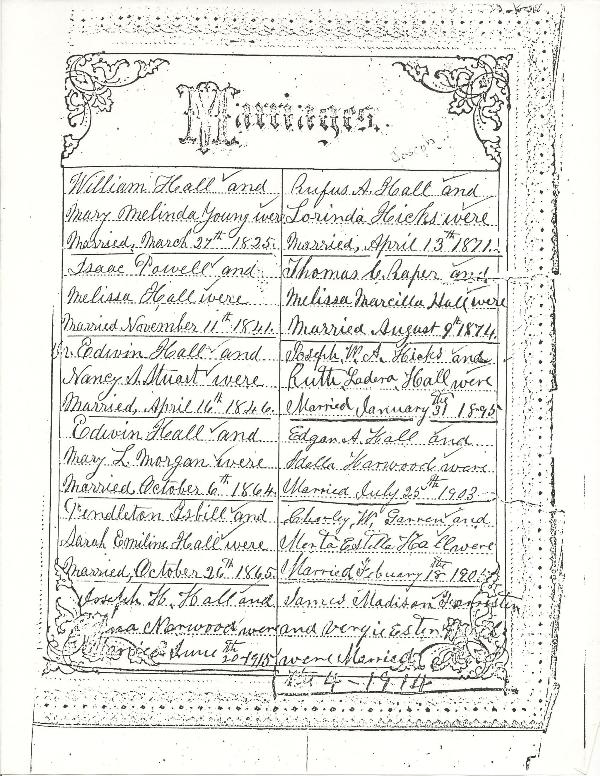 Marriages.
William Hall and
Mary Melinda Young were
Married, March 27th 1825.
Isaac Powell and
Melissa Hall were
Married November 11th 1841.
Edwin Hall and
Nancy A. Stuart were
Married, April 16th 1846.
Edwin Hall and
Mary L. Morgan were
Married October 6th 1864.
Pendleton Isbill and
Sarah Emiline Hall were
Married, October 26th 1865.
Joseph H. Hall and
Norwood were
June 20th 1915
Joseph
Rufus A. Hall and
Lorinda Hicks were
Married, April 13th 1871.
Thomas C. Raper and
Melissa Marcilla Hall were
Married August 9th 1874.
Joseph W. A. Hicks and
Ruth Ladora Hall were
Married January 31th 1895
Edgar A. Hall and
Adella Harwood were
Married July 25th 1903
Charley W. Garren and
Merta Estella Hall were
Married February 18th
James Madison
and Vergie
were Married
4-1914